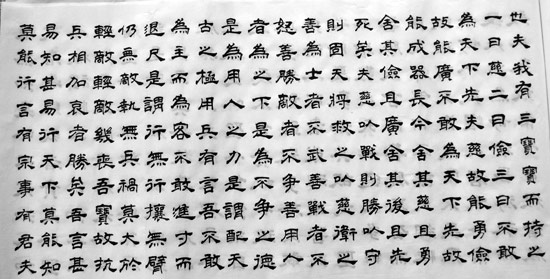 也夫我有三寶寶而持之
一曰慈二曰儉三曰不敢
為天下先夫慈故能勇儉
故能廣不敢為天下先故
能成器長今舍其慈且勇
舍其儉且廣舍其後且先
死矣夫慈以戰則勝以守
則固天將救之以慈衛之
善為士者不武善戰者不
怒善勝敵者不爭善用人
者為之下是為不爭之德
是為用人之力是謂配天
古之極用兵有言吾不敢
為主而為客不敢進寸而
退尺是謂行無行攘無臂
仍無敵執無兵禍莫大於
輕敵輕敵幾喪吾寶故抗
兵相加哀者勝矣吾言甚
易知甚易行天下莫能知
莫能行言有宗事有君夫